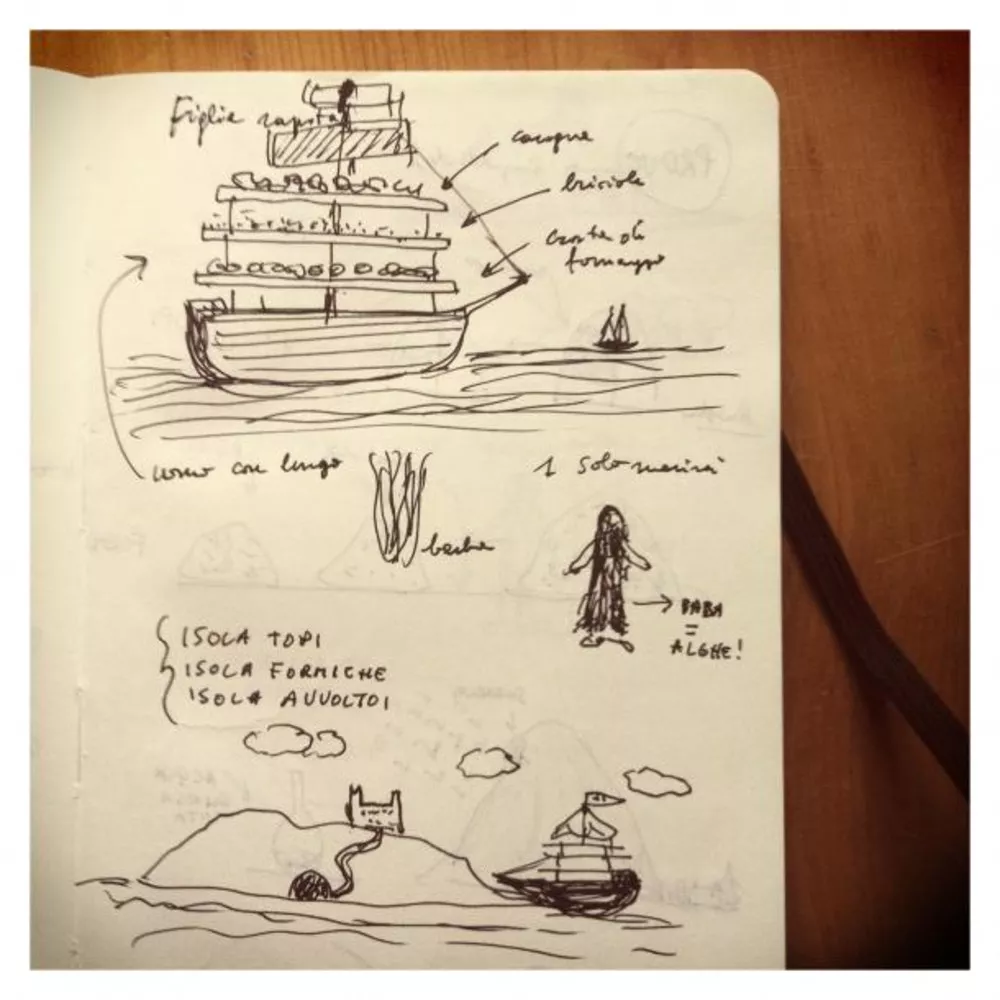 Figlia rapita
carogne
briciole
croste di
formaggio
uomo con lungo
barba
1 solo marinai
BABA
=
ALGHE!
ISOLA TOPI
ISOLA FORMICHE
ISOLA AVVOLTOI